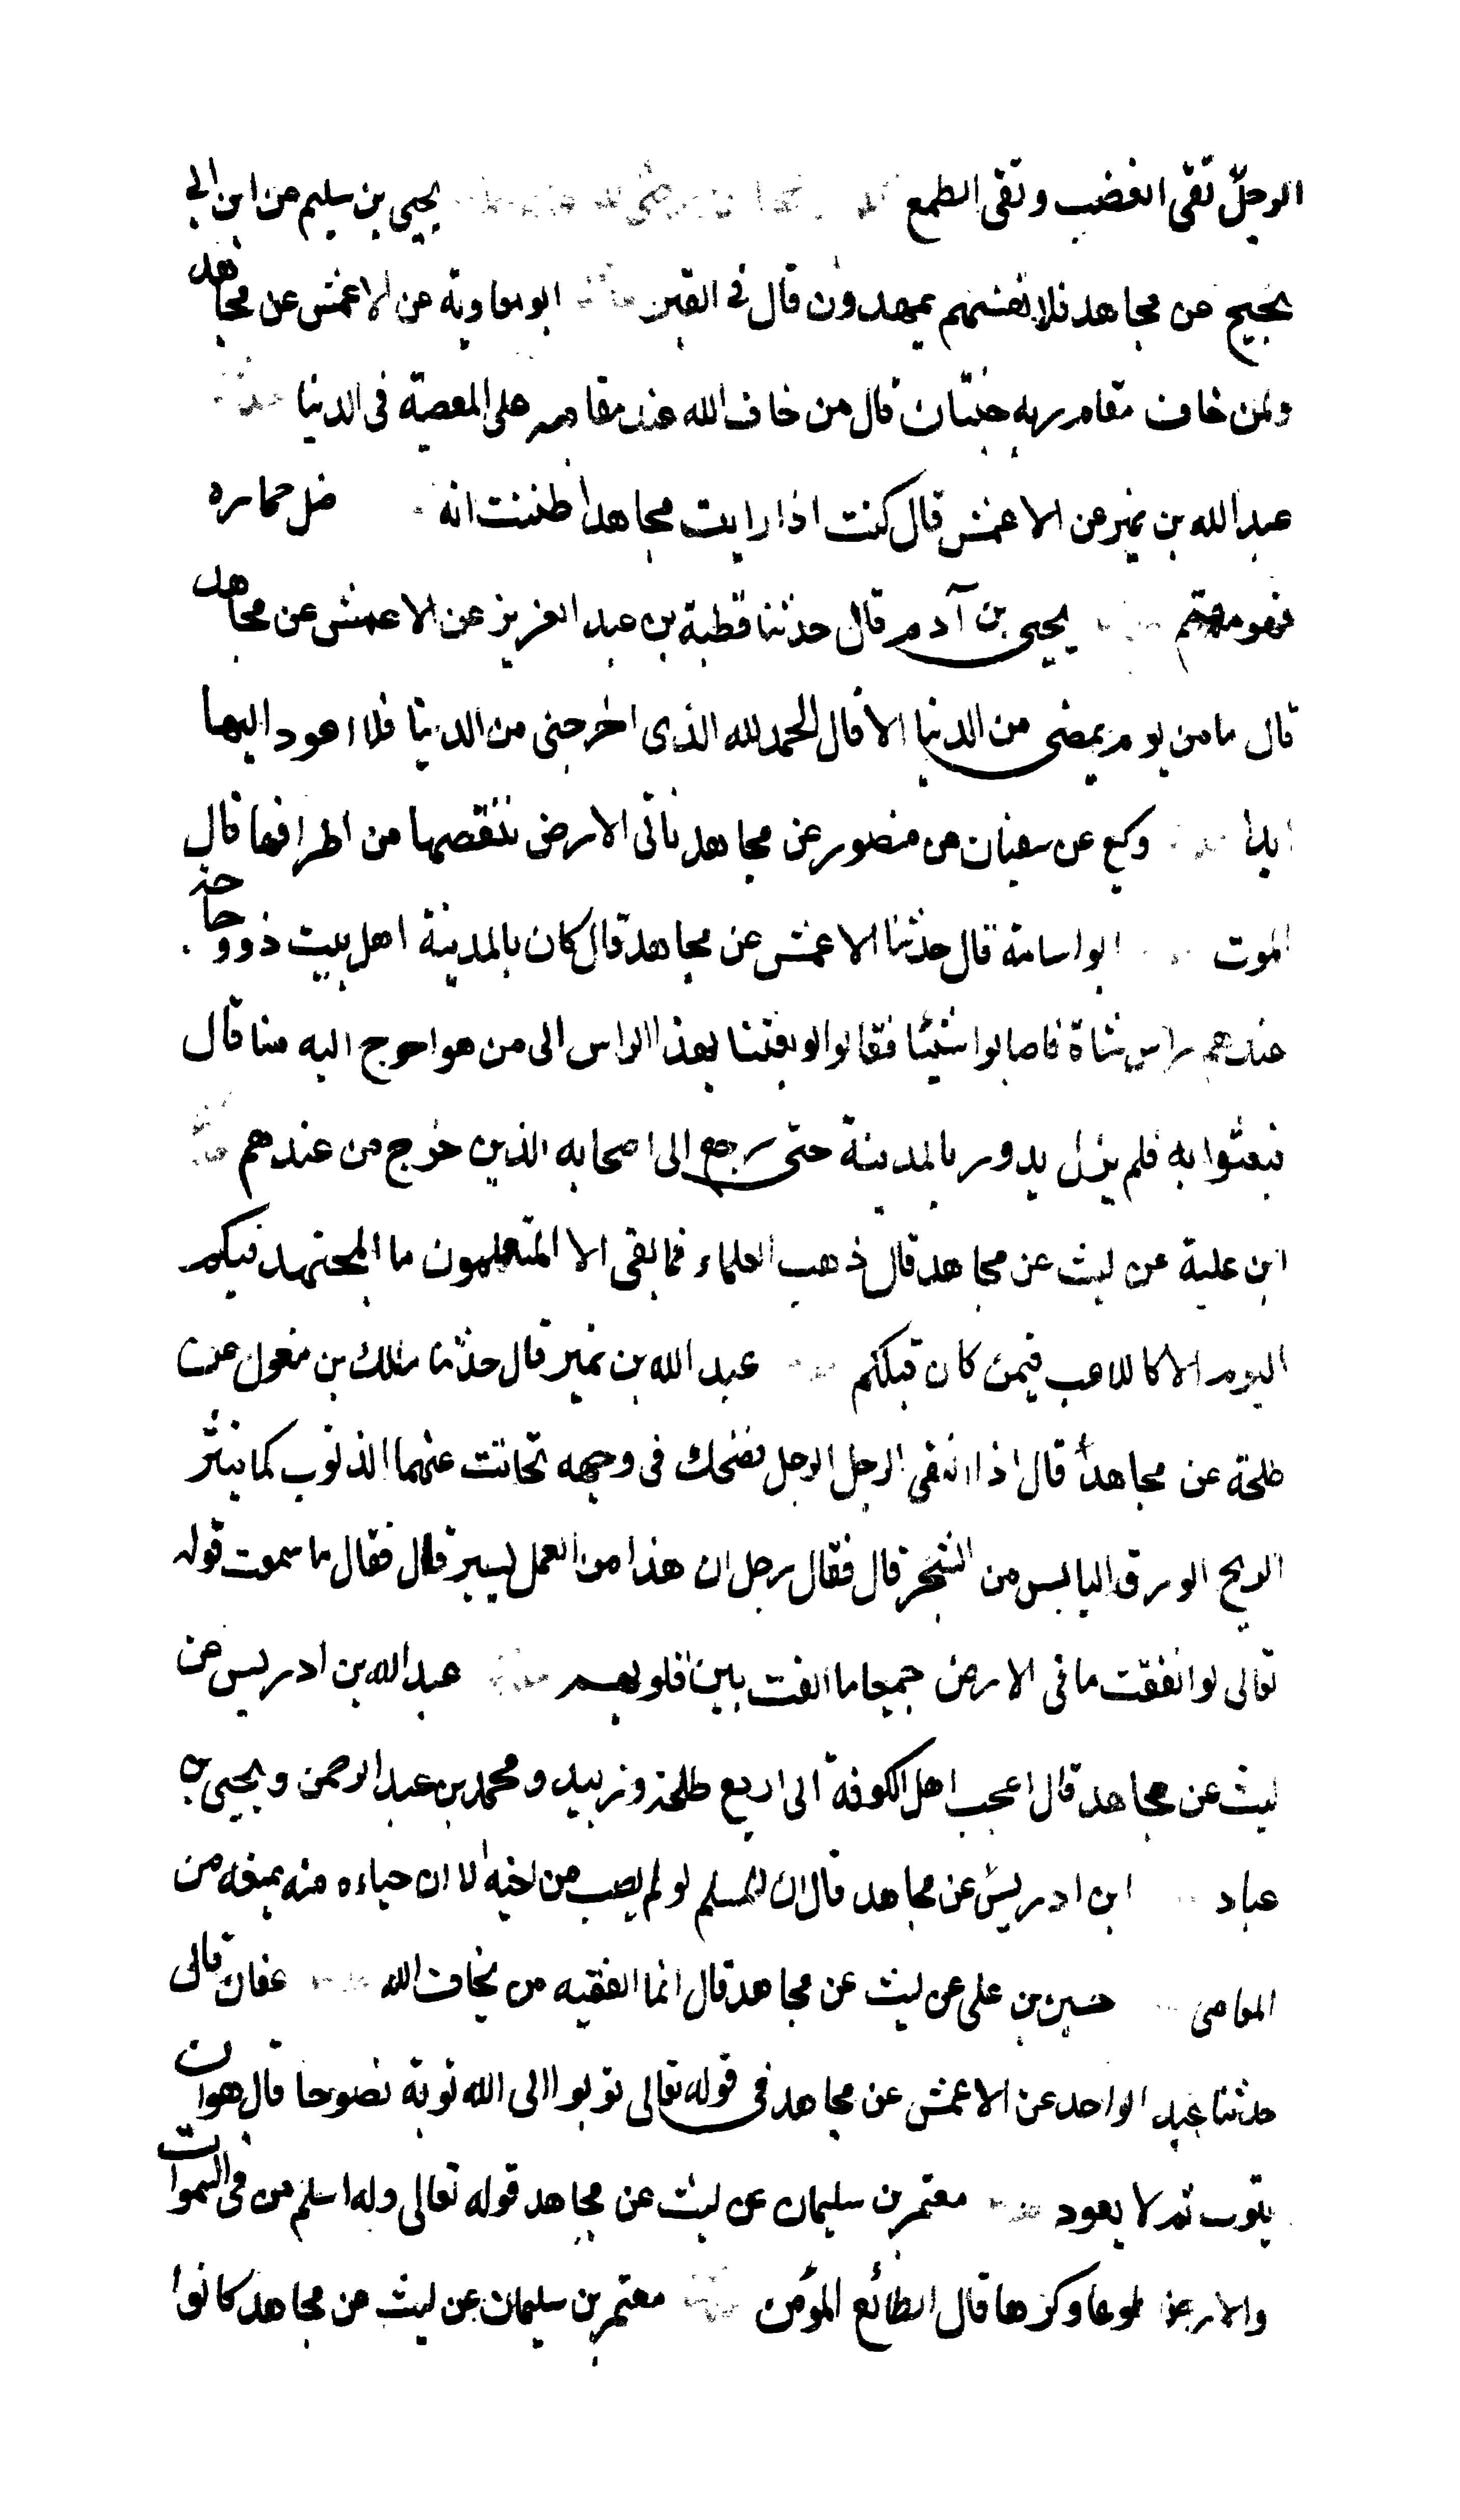 الرجل تقى الغضب وتقى الطمع يحيي بن سليم عن ابن ابي
نجيح عن مجاهد فلانفسهم يمهدون قال فى القبر ابو معاوية عن الاعمش عن مجاهد
ولمن خاف مقام ربه جنتان قال من خاف الله عند مقامه على المعصية فى الدنيا
عبد الله بن نمير عن الاعمش قال كنت اذا رايت مجاهدا ظننت انه ضل حماره
فهو مهتم يحيى بن آدم قال حدثنا قطبة بن عبد العزيز عن الاعمش عن مجاهد
قال ما من يوم يمضى من الدنيا الا قال الحمد لله الذى اخرجنى من الدنيا فلا اعود اليها
ابدا وكيع عن سفيان عن منصور عن مجاهد ناتى الارض ننقصها من اطرافها قال
الموت ابو اسامة قال حدثنا الاعمش عن مجاهد قال كان بالمدينة اهل بيت ذوو حاجة
عندهم راس شاة فاصابوا شيئا فقالوا لو بعثنا بهذا الراس الى من هو احوج اليه منا قال
فبعثوا به فلم يزل يدور بالمدينة حتى رجع الى اصحابه الذين خرج من عندهم
ابن علية عن ليث عن مجاهد قال ذهب العلماء فما بقى الا المتعلمون ما المجتهد فيكم
اليوم الا كاللاعب فيمن كان قبلكم عبد الله بن نمير قال حدثنا مالك بن مغول عن
طلحة عن مجاهد قال اذا التقى الرجل الرجل فضحك فى وجهه تحاتت عنهما الذنوب كما ينثر
الريح الورق اليابس من الشجر قال فقال رجل ان هذا من العمل ليسير قال فقال ما سمعت قوله
تعالى لو انفقت ما فى الارض جميعا ما الفت بين قلوبهم عبد الله بن ادريس عن
ليث عن مجاهد قال اعجب اهل الكوفة الى اربع طلحة وزبيد ومحمد بن عبد الرحمن ويحيى بن
عباد ابن ادريس عن مجاهد قال ان المسلم لو لم يصب من اخيه الا ان حياءه منه يمنعه من
المعاصى حسين بن على عن ليث عن مجاهد قال انما الفقيه من يخاف الله عفان قال
حدثنا عبد الواحد عن الاعمش عن مجاهد فى قوله تعالى توبوا الى الله توبة نصوحا قال هو ان
يتوب ثم لا يعود معتمر بن سليمان عن ليث عن مجاهد قوله تعالى وله اسلم من فى السموات
والارض طوعا وكرها قال الطائع المؤمن معتمر بن سليمان عن ليث عن مجاهد كانوا